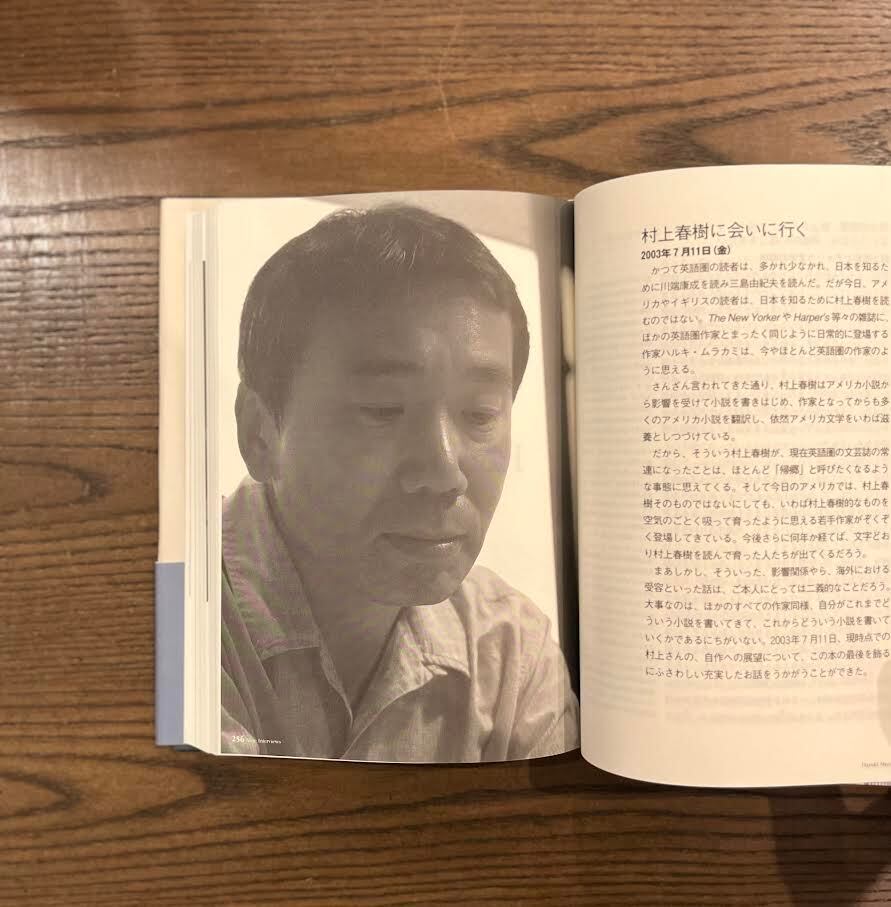 256 Nine Interviews
村上春樹に会いに行く
2003年7月11日(金)
かつて英語圏の読者は、多かれ少なかれ、日本を知るた
めに川端康成を読み三島由紀夫を読んだ。だが今日、アメ
リカやイギリスの読者は、日本を知るために村上春樹を読
むのではない。The New YorkerやHarper's等々の雑誌に、
ほかの英語圏作家とまったく同じように日常的に登場する
作家ハルキ・ムラカミは、今やほとんど英語圏の作家のよ
うに思える。
さんざん言われてきた通り、村上春樹はアメリカ小説か
ら影響を受けて小説を書きはじめ、作家となってからも多
くのアメリカ小説を翻訳し、依然アメリカ文学をいわば滋
養としつづけている。
だから、そういう村上春樹が、現在英語圏の文芸誌の常
連になったことは、ほとんど「帰郷」と呼びたくなるよう
な事態に思えてくる。そして今日のアメリカでは、村上春
樹そのものではないにしても、いわば村上春樹的なものを
空気のごとく吸って育ったように思える若手作家がぞくぞ
く登場してきている。今後さらに何年か経てば、文字どお
り村上春樹を読んで育った人たちが出てくるだろう。
まあしかし、そういった、影響関係やら、海外における
受容といった話は、ご本人にとっては二義的なことだろう。
大事なのは、ほかのすべての作家同様、自分がこれまでど
ういう小説を書いてきて、これからどういう小説を書いて
いくかであるにちがいない。2003年7月11日、現時点での
村上さんの、自作への展望について、この本の最後を飾る
にふさわしい充実したお話をうかがうことができた。